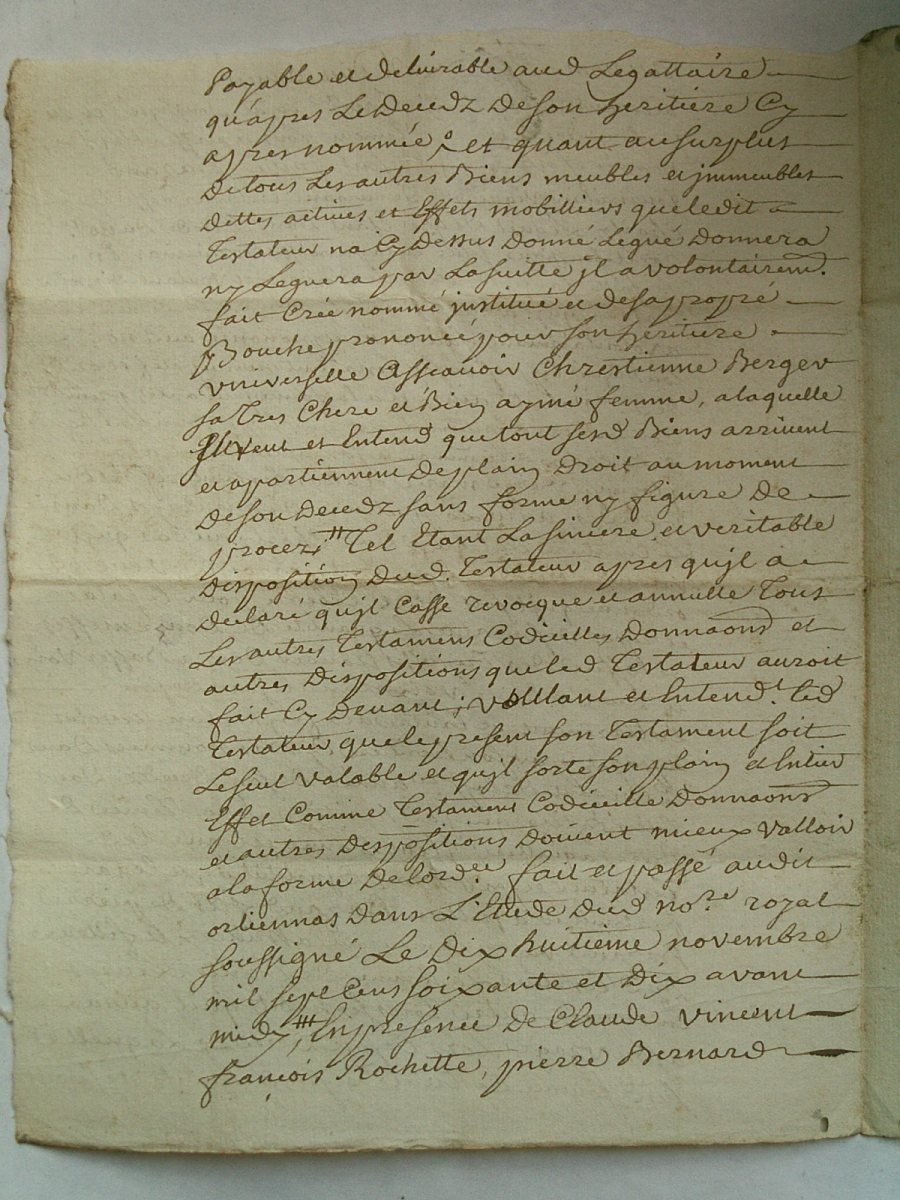 Payable et delivrable aud Legattaire
qu'apres Le Decedz De son heritiere Cy
apres nommée, et quant au surplus
De tous Les autres Biens meubles et jmmeubles
dettes actives et Effets mobilliers que ledit
Testateur na Cy Dessus Donné Legué Donnera
ny Leguera par La suitte jl a volontairem.t
fait Créé nommé justitué et de sa propre
Bouche prononcé pour son heritiere
vniverselle Asseavoir Chrestienne Berger
sa Tres Chere et Bien aymé femme, a laquelle
Il veut et Entend que tout sesd Biens arrivent
et apartiennent De plain Droit au moment
De son Decedz sans forme ny figure De
procez, Tel Etant La sincere et veritable
Disposition Dud. Testateur apres qujl a
declaré qujl Casse revocque et annulle Tous
Les autres Testamens Codicilles Donnaons et
autres Dispositions que led Testateur auroit
fait Cy Devant; voullant et Entend.t led
Testateur que le present son Testament soit
Le seul valable et qujl sorte son plain et Entier
Effet Comme Testament Codicille Donnaons
et autres Dispositions Doivent mieux valloir
a la forme De lord.ce fait et passé audit
orliennas Dans L'Etude Dud no.re royal
soussigné Le Dix huitieme novembre
mil sept Cens soixante et Dix avant
midy, En presence De Claude vincent
françois Rochette, pierre Bernard